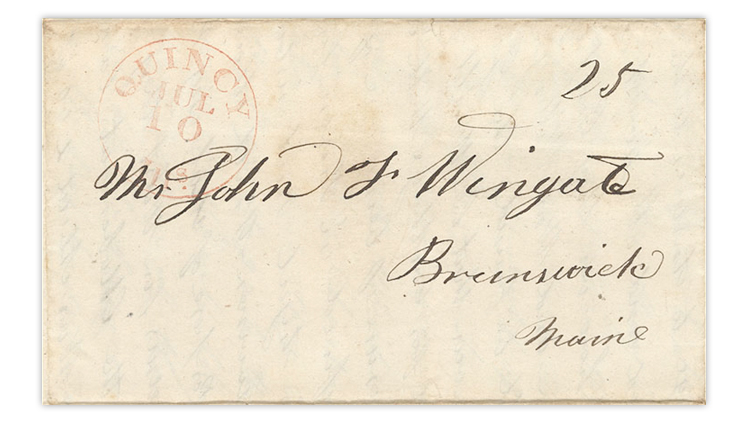 QUINCY
JUL
10
Ils.
25
Mr John F Wingate
Brunswick
Maine